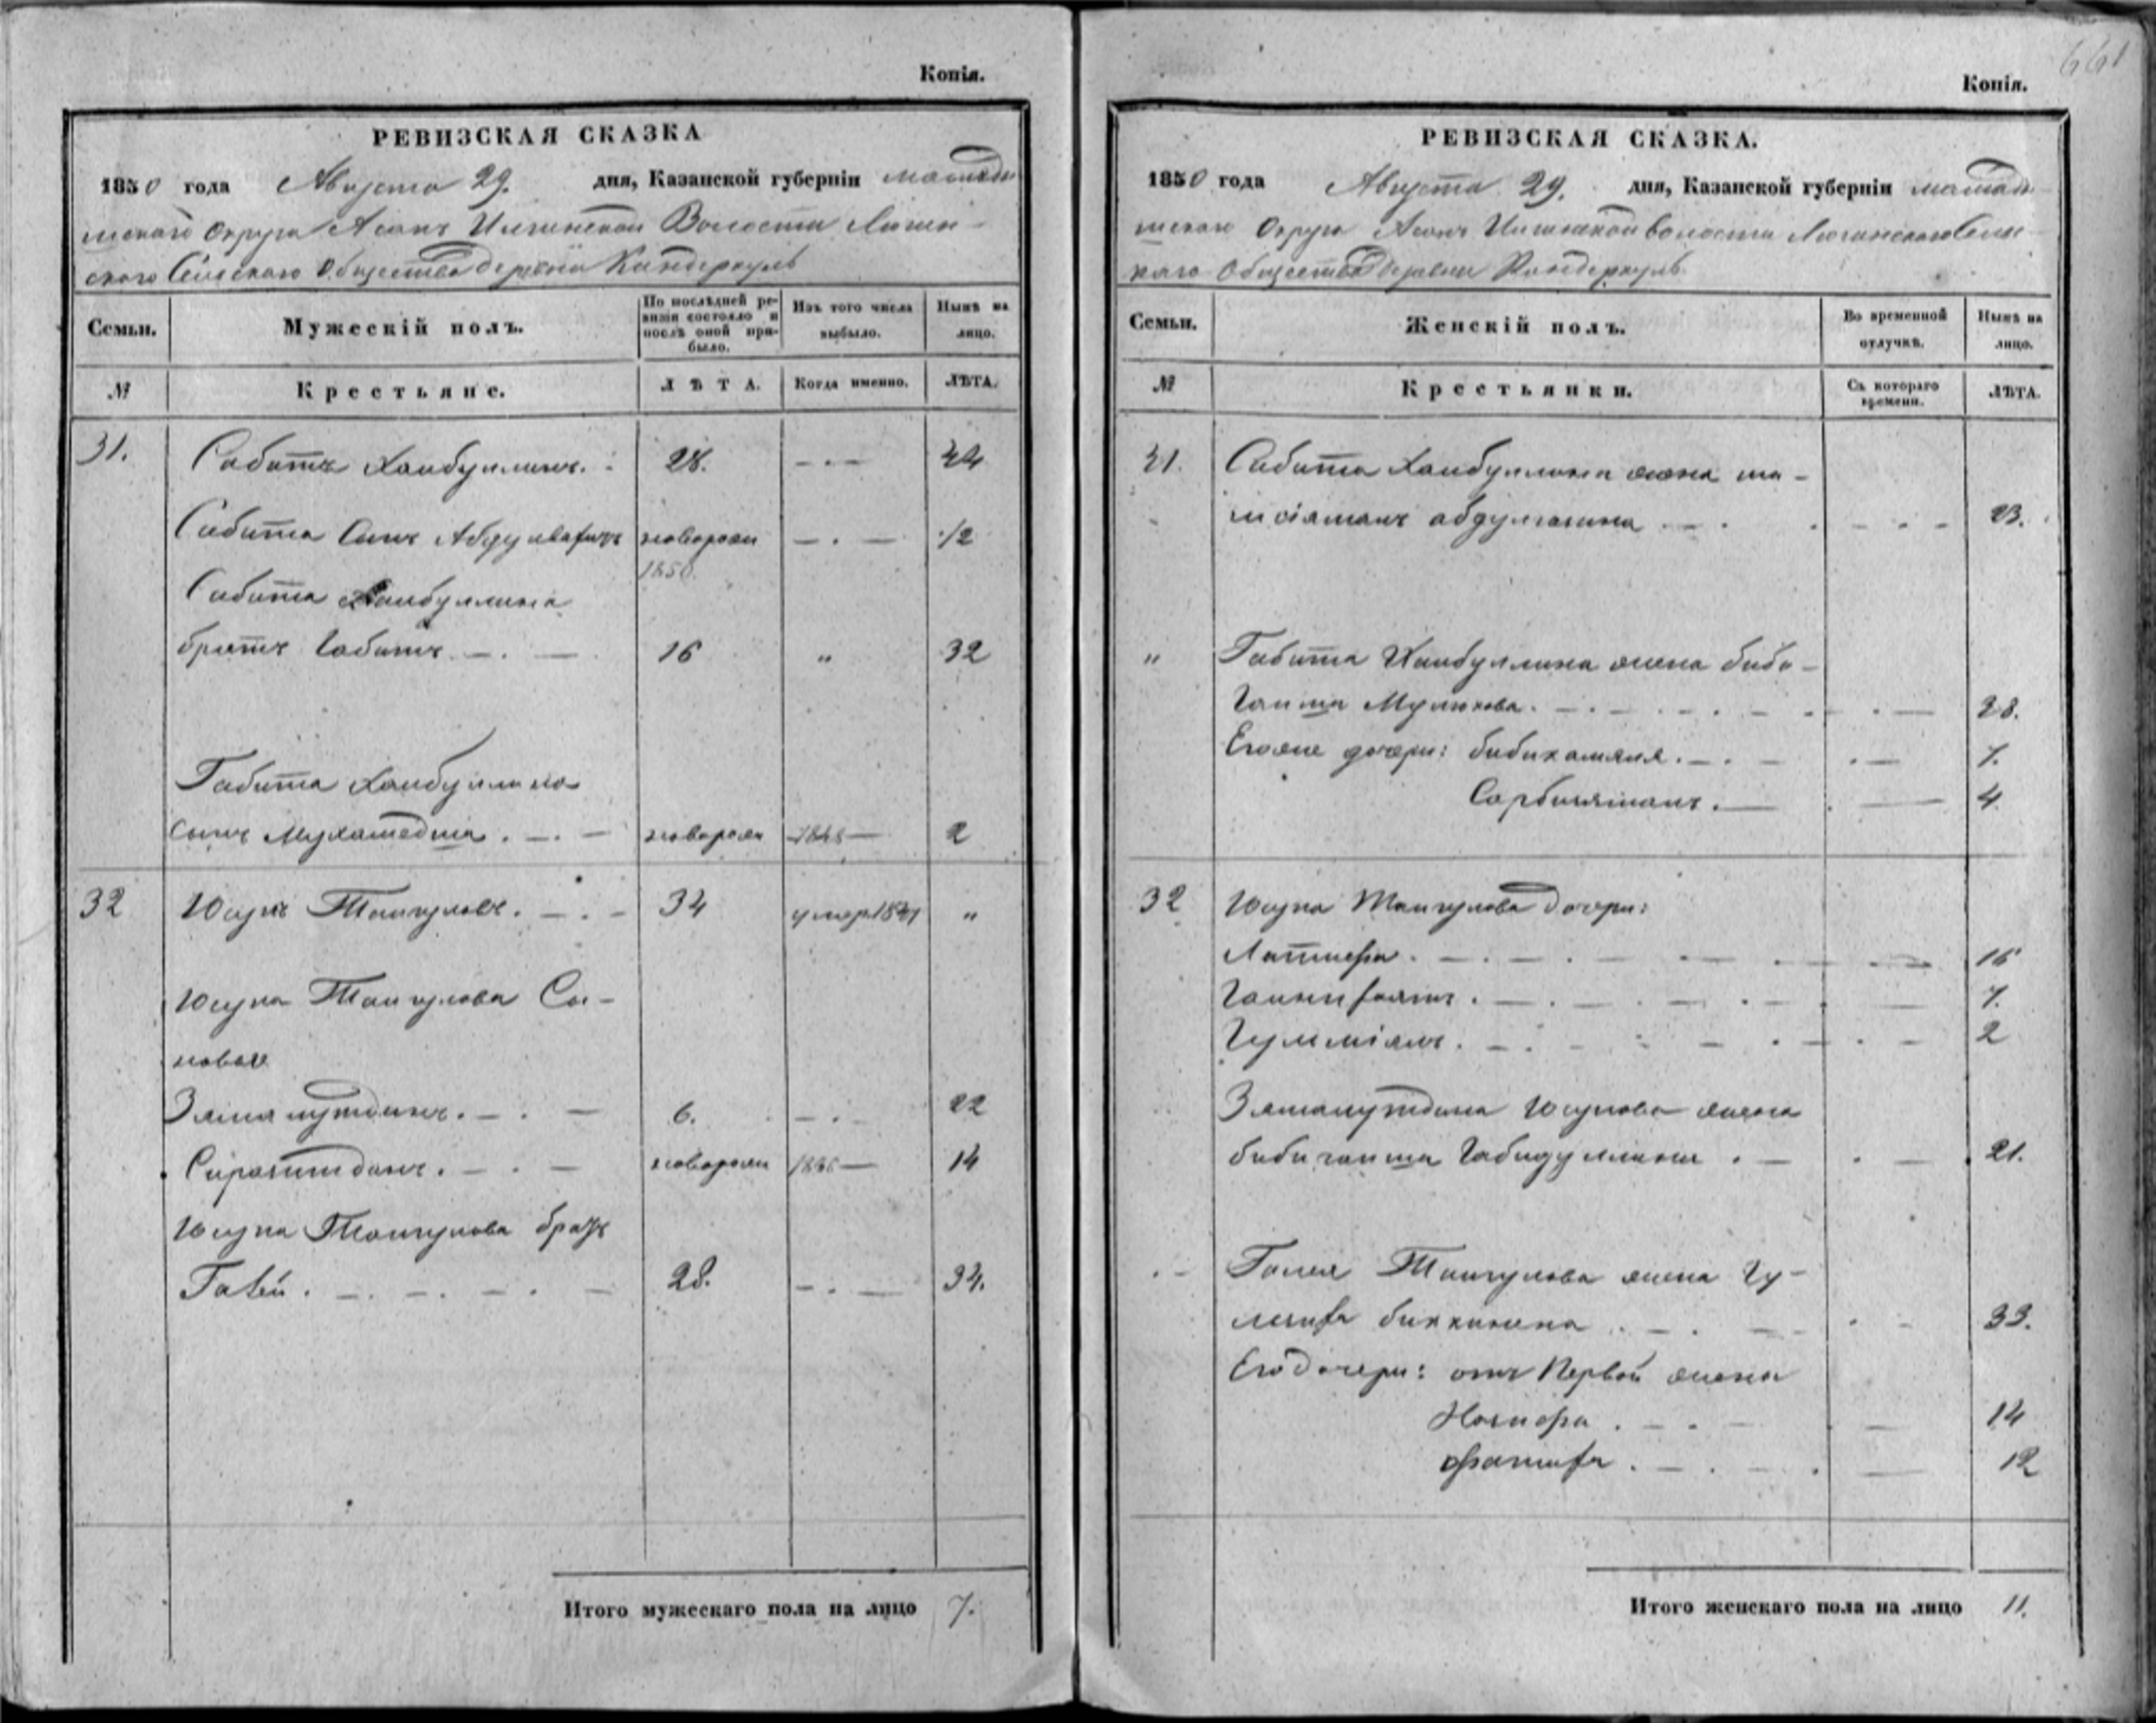 Копія.
РЕВИЗСКАЯ СКАЗКА
1850 года Августа 29. дня, Казанской губерніи мамады
шского Округа Асанъ Илгинской Волости Люгин-
ского Сельского Общества деревни Киндеркуль
Семьи. Мужескій полъ. По послѣдней ревизіи состояло и послѣ оной прибыло. Изъ того числа выбыло. Нынѣ на лицо.
№ Крестьяне. ЛѢТА. Когда именно. ЛѢТА.
31. Сабитъ Хаибуллинъ. 28. 44
Сабита Сынъ новорожн 1/2
1850.
Сабита Хаибуллина
братъ Габитъ 16 „ 32
Габита Хаибуллина
сынъ Мухаметша новорожн 1848 2
32 Юсупъ Таигуловъ. 34 умер 1841 „
Юсупа Таигулова Сы-
новья
Зямалутдинъ. 6. 22
Сиразитдинъ. новорожн 1836 14
Юсупа Таигулова братъ
Галей. 28. 34.
Итого мужескаго пола на лицо 7.
661
Копія.
РЕВИЗСКАЯ СКАЗКА.
1850 года Августа 29. дня, Казанской губерніи мамады-
шского Округа Асанъ Илгинской волости Люгинского Сельс-
каго Общества деревни Киндеркуль
Семьи. Женскій полъ. Во временной отлучкѣ. Нынѣ на лицо.
№ Крестьянки. Съ котораго времени. ЛѢТА.
31. Сабита Хаибуллина жена ша-
абдулгазина 23.
„ Габита Хаибуллина жена биби-
Гаиша Мулюкова. 28.
Егоже дочери: бибикамаля. 7.
Сарбижамалъ. 4
32 Юсупа Таигулова дочери:
Латифа. 16
7.
2
Зямалутдина Юсупова жена
бибигаиша Габидуллина 21.
Галея Таигулова жена Гу-
биккинина 33.
Его дочери: отъ Первой жены
14
12
Итого женскаго пола на лицо 11.